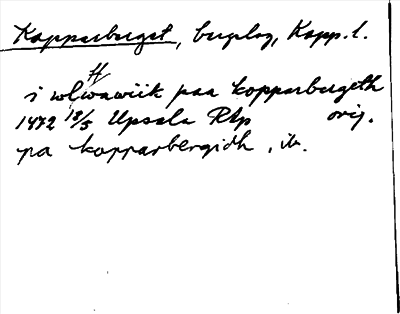 Kopparberget, bergslag, Kopp. l.
i wlwawiik paa kopparbergeth
1472 18/5 Upsala RAp orig.
pa kopparbergidh, ib.